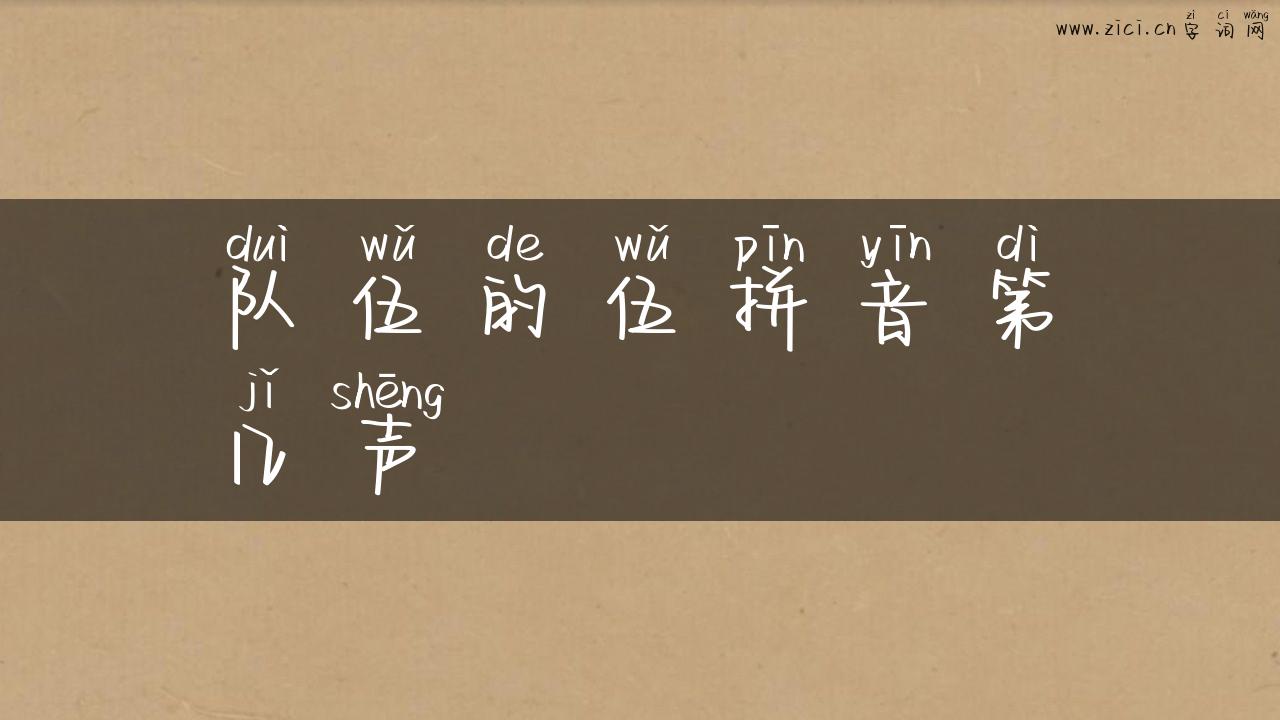 zì cí wǎng
www.zici.cn 字 词 网
duì wǔ de wǔ pīn yīn dì
队 伍 的 伍 拼 音 第
jǐ shēng
几 声